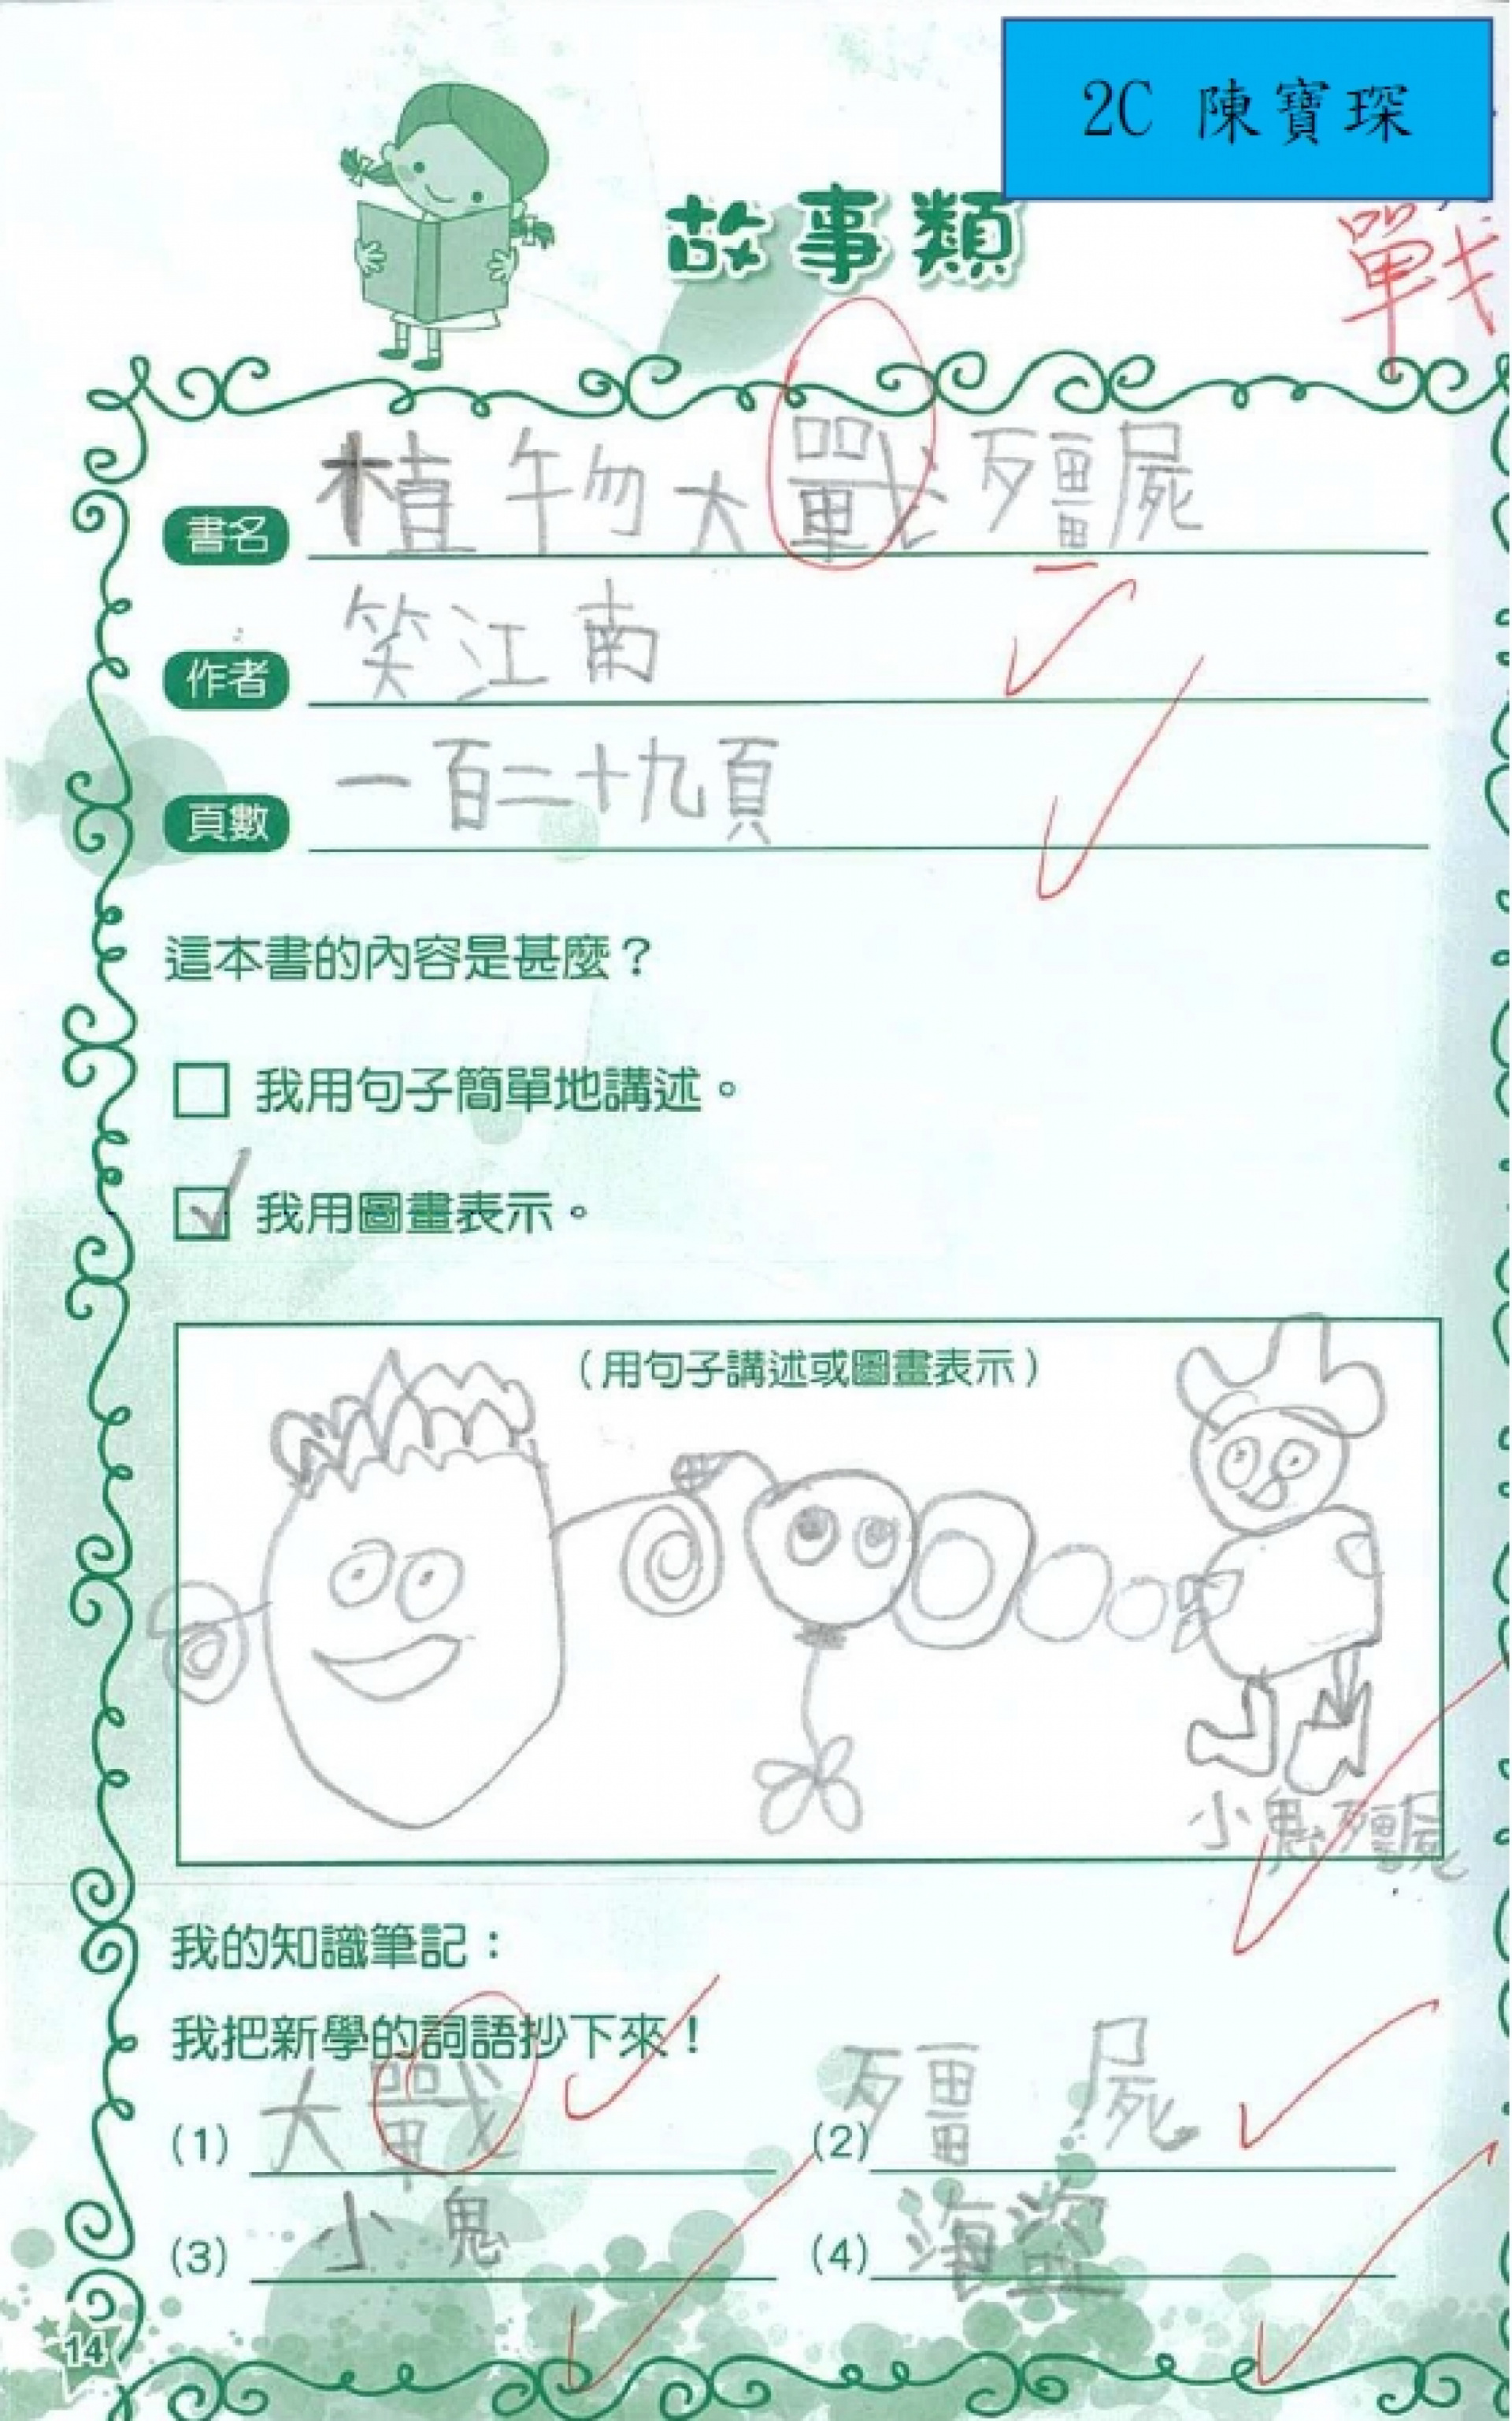 2C 陳寶琛
故事類
戰
書名 植物大戰殭屍
作者 笑江南
頁數 一百二十九頁
這本書的內容是甚麼？
我用句子簡單地講述。
我用圖畫表示。
（用句子講述或圖畫表示）
小鬼殭屍
我的知識筆記：
我把新學的詞語抄下來！
(1) 大戰 (2) 殭屍
(3) 小鬼 (4) 海盜
14